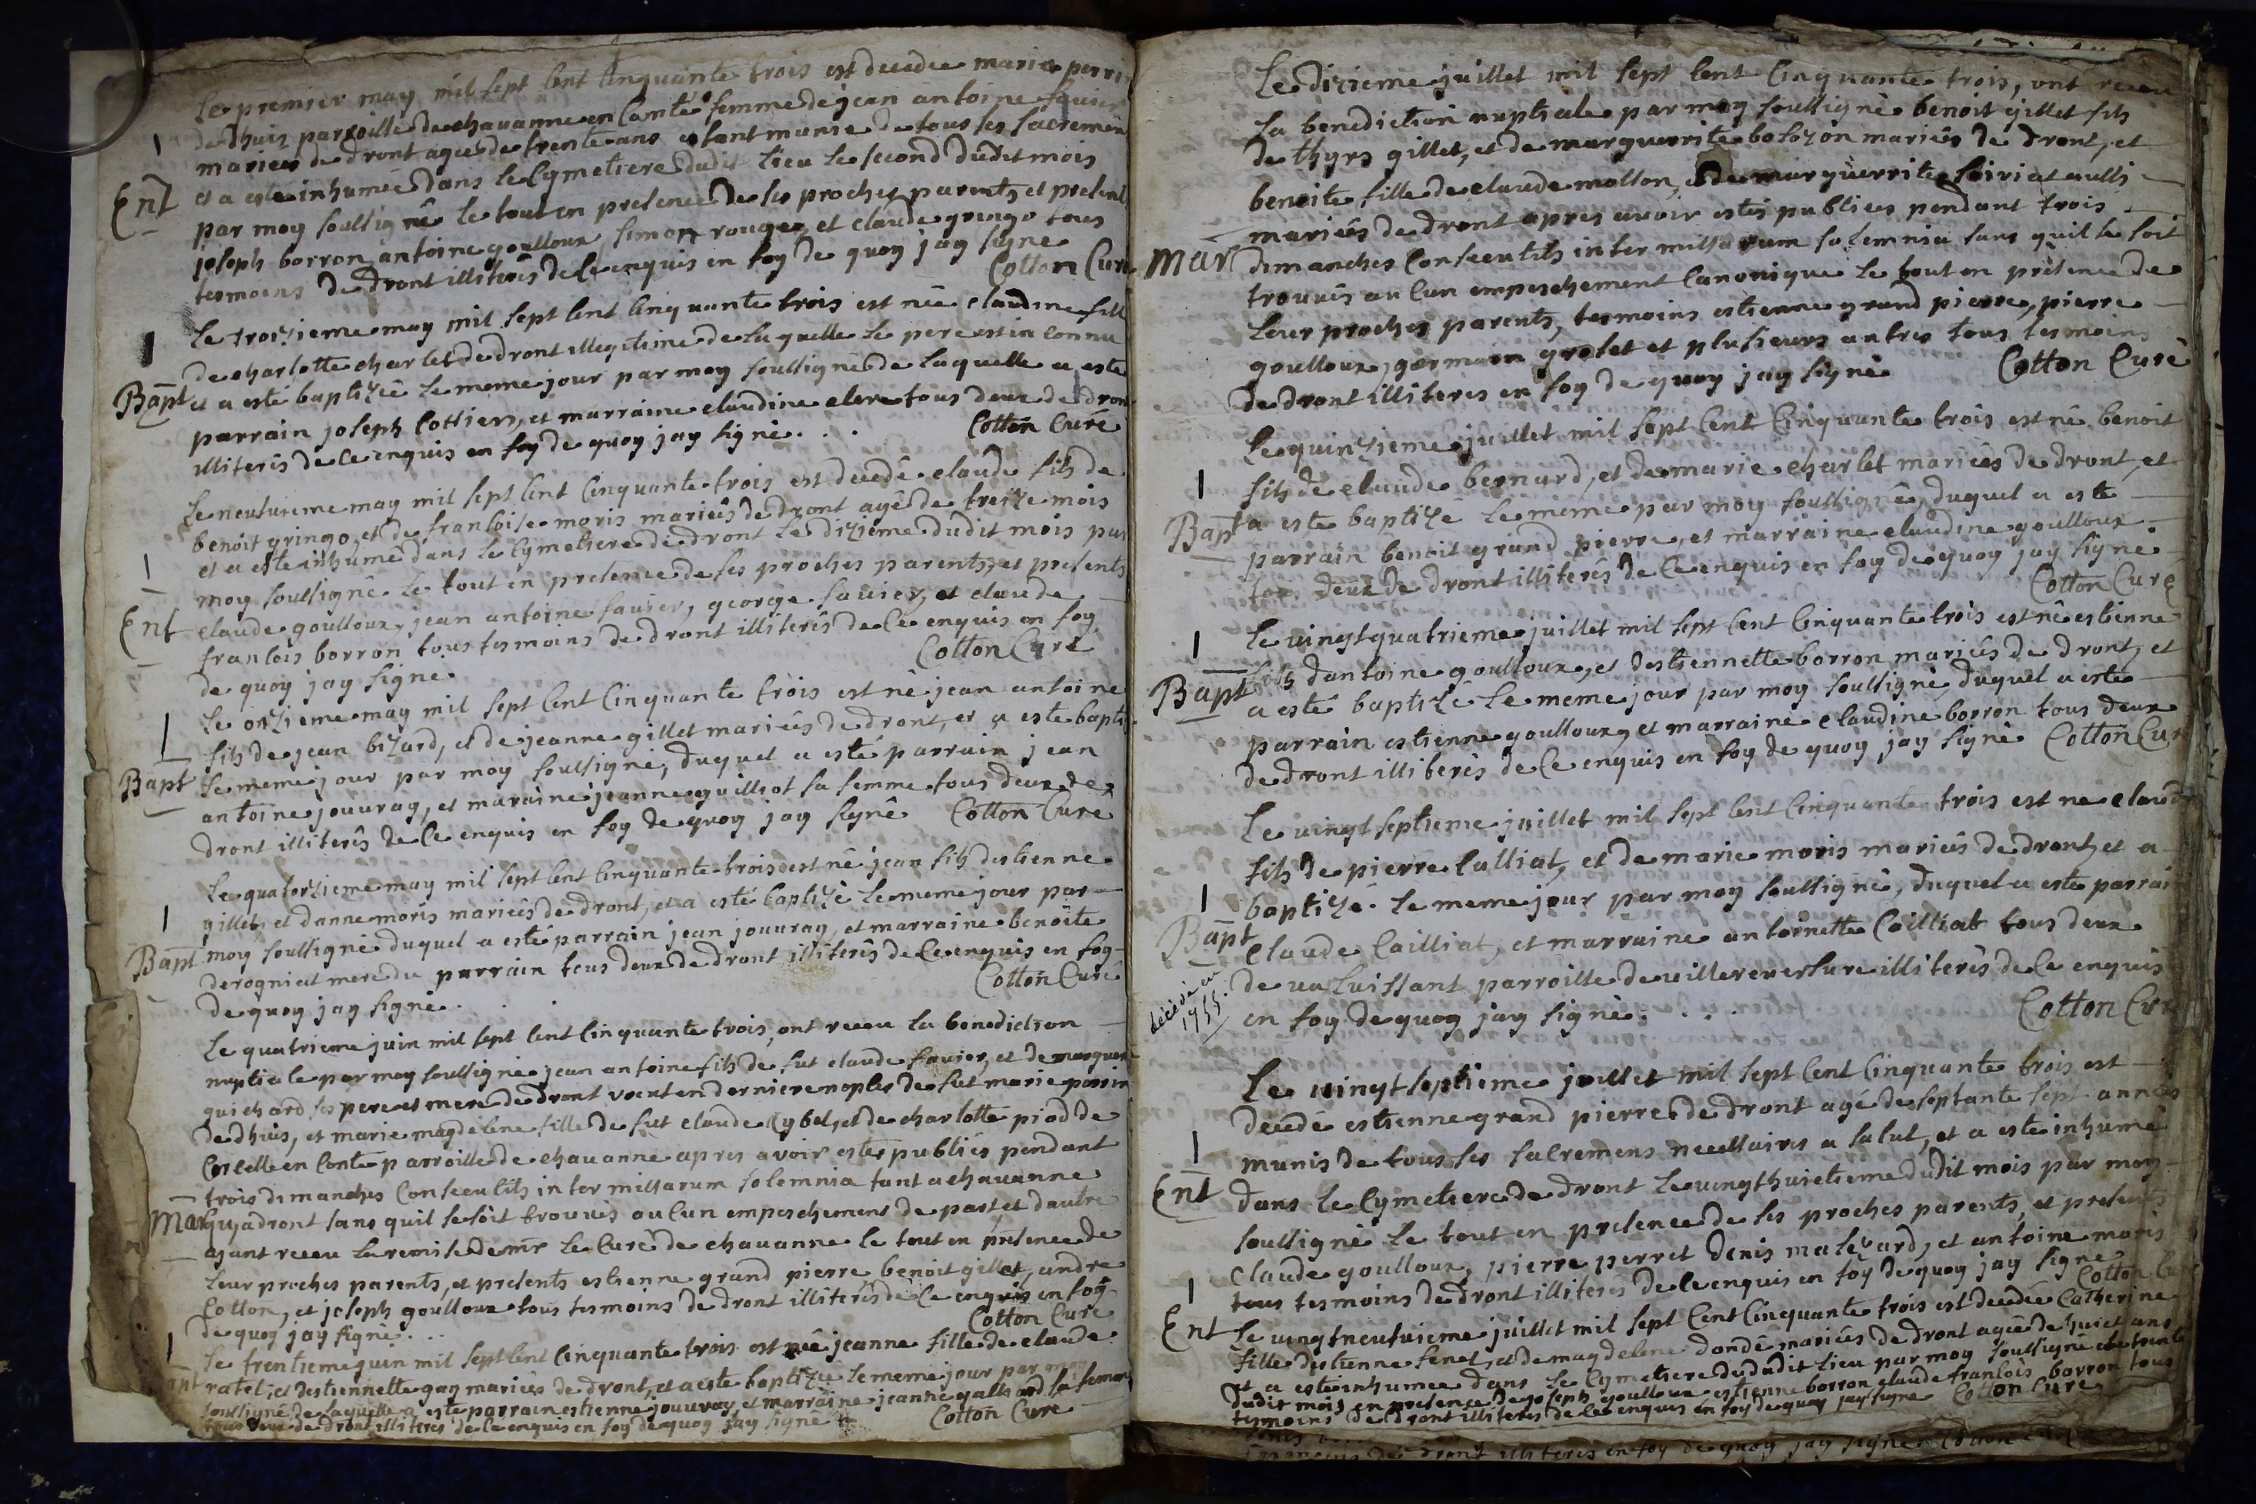 Le premier may mil sept cent cinquante trois est decedee marie perrin
de dhuis parroisse de chavanne en Comté femme de jean antoine favier
mariez de dront agee de trente ans estant munie de tous ses sacremens
Ent et a esté inhumée dans le Cymetiere dudit lieu le second dudit mois
par moy soussigné le tout en presence de ses proches parents et present
joseph borron antoine goulloux simon rouges et claude gringo tous
tesmoins de dront illiterés de ce enquis en foy de quoy jay signe
Cotton Curé
Le troizieme may mil sept cent cinquante trois est née claudine fille
de charlotte charlet de dront illegitime de laquelle le pere est inconnu
Bapt et a esté baptizée le meme jour par moy soussigné de laquelle a esté
parrain joseph Cottier, et marraine claudine clerc tous deux de dront
illiterés de ce enquis en foy de quoy jay signé . . . Cotton Curé
Le neufvieme may mil sept cent cinquante trois est decedé claude fils de
benoit gringo, et de francoise moris mariés de dront agé de treize mois
et a esté inhumé dans le Cymetiere de dront le dizieme dudit mois par
moy soussigné le tout en presence de ses proches parents, et presents
Ent claude goulloux, jean antoine favier, george favier, et claude
francois borron tous tesmoins de dront illiterés de ce enquis en foy
de quoy jay signé. Cotton Curé
Le onzieme may mil sept cent cinquante trois est né jean antoine
fils de jean bizard, et de jeanne gillet mariés de dront, et a esté bapti
Bapt le meme jour par moy soussigné, duquel a esté parrain jean
antoine jouvray, et maraine jeanne guilliot sa femme tous deux de
dront illiterés de ce enquis en foy de quoy jay signé Cotton Curé
Le quatorzieme may mil sept cent cinquante trois est né jean fils destienne
gillet, et danne moris mariés de dront, et a esté baptizé le meme jour par
Bapt moy soussigné duquel a esté parrain jean jouvray, et marraine benoite
derogniat mere du parrain tous deux de dront illiterés de ce enquis en foy
de quoy jay signé . . . Cotton Curé
Le quatrieme juin mil sept cent cinquante trois, ont receu la benediction
nuptiale par moy soussigné jean antoine fils de fut claude favier, et de marguer
guichard ses pere et mere de dront veuf en derniere noples de fut marie perrin
de dhuis, et marie magdelene fille de fut claude Cybet, et de charlotte piod de
Corcelle en Conte parroisse de chavanne apres avoir estés publiés pendant
trois dimanches Consecutifs inter missarum solemnia tant a chavanne
Mar qu'a dront sans quil se soit trouvés aucun empeschement de part et dautre
ayant receu la remise de mr le Curé de chavanne le tout en presence de
leur proches parents, et presents estienne grand pierre, benoit gillet, andre
Cotton, et joseph goulloux tous tesmoins de dront illiterés de ce enquis en foy
de quoy jay signé . . . Cotton Curé
Le trentieme juin mil sept cent cinquante trois est née jeanne fille de claude
ratet, et destiennette gay mariés de dront, et a esté baptizée le meme jour par moy
soussigné de laquelle a esté parrain estienne jouvray, et marraine jeanne galliard sa femme
tous deux de dront illiterés de ce enquis en foy de quoy jay signé Cotton Curé
Le dizieme juillet mil sept cent cinquante trois, ont receu
la benediction nuptiale par moy soussigné benoit gillet fils
de thyrs gillet, et de marguerrite bolozon mariés de dront, et
benoite fille de claude mollon, et de marguerrite soiriat aussi
mariés de dront apres avoir estés publiés pendant trois
Mar dimanches Consecutifs inter missarum solemnia sans quil se soit
trouvés aucun empeschement Canonique le tout en presence de
leur proches parents, tesmoins estienne grand pierre, pierre
goulloux, germain grolet et plusieurs autres tous tesmoins
de dront illiteres en foy de quoy jay signé Cotton Curé
Le quinzieme juillet mil sept cent cinquante trois est né benoit
fils de claude bernard, et de marie charlet mariés de dront, et
Bapt a esté baptizé le meme par moy soussigné, duquel a esté
parrain benoit grand pierre, et marraine claudine goulloux
tous deux de dront illiterés de ce enquis en foy de quoy jay signé
Cotton Curé
Le vingt quatrieme juillet mil sept cent cinquante trois est né estienne
Bapt fils dantoine goulloux, et destiennette borron mariés de dront, et
a esté baptizé le meme jour par moy soussigné, duquel a esté
parrain estienne goulloux, et marraine claudine borron tous deux
de dront illiterés de ce enquis en foy de quoy jay signé Cotton Curé
Le vingt septieme juillet mil sept cent cinquante trois est né claude
fils de pierre Calliat, et de marie moris mariés de dront, et a
Bapt baptizé le meme jour par moy soussigné, duquel a esté parrain
Claude Cailliat, et marraine antoinette Cailliat tous deux
de parroisse de villereversure illiterés de ce enquis
décédé en 1755. en foy de quoy jay signé . . . Cotton Curé
Le vingt septieme juillet mil sept cent cinquante trois est
decedé estienne grand pierre de dront agé de septante sept années
munis de tous ses sacremens necessaires a salut, et a esté inhumé
Ent dans le Cymetiere de dront le vingt huictieme dudit mois par moy
soussigné le tout en presence de ses proches parents, et presents
Claude goulloux, pierre perret denis malezard, et antoine moris
tous tesmoins de dront illiterés de ce enquis en foy de quoy jay signé
Cotton Curé
Ent Le vingt neufvieme juillet mil sept cent cinquante trois est decedée Catherine
fille destienne senet, et de magdelene dondé mariés de dront agée de huict ans
et a esté inhumée dans le Cymetiere dudit lieu par moy soussigné le trente
dudit mois en presence de joseph goulloux estienne borron claude francois borron tous
tesmoins de dront illiteres de ce enquis en foy de quoy jay signé Cotton Curé
de dront illiteres en foy de quoy jay signé